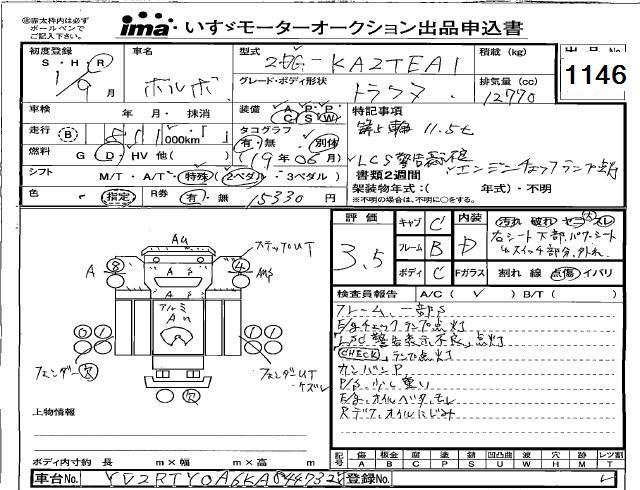 ㊟赤太枠内は必ず
ボールペンで
ご記入下さい。
ima いすゞモーターオークション出品申込書
初度登録 S・H・R 1/9月
車名 ボルボ
型式 2PG-KA2TEA1
積載 (kg)
出品No. 1146
グレード・ボディ形状 トラクタ
排気量 (cc) 12770
車検 年 月・抹消
装備 A P P C S W
特記事項
走行 B 511,000km
タコグラフ 有・無 別体
第5輪 11.5t
燃料 G D・HV 他( )
(19年06月)
LCS警告表示 エンジンチェックランプ点灯
書類2週間
シフト M/T・A/T・特殊(2ペダル・3ペダル)
架装物年式:( 年式)・不明
※不明の場合は、不明に○をする。
色 指定 R券 有・無 15330円
評価 3.5
キャブ C
フレーム B
ボディ C
内装 中
汚れ 破れ スレ
右シート下部、パワーシート
スイッチ部分、外れ
Fガラス 割れ 線 点傷 イバリ
検査員報告 A/C( ✓ ) B/T( )
フレーム、一部S
E/gチェックランプ点灯
「LSC警告表示不良」点灯
CHECK ランプ点灯
カンバンP
P/S少し重い
E/g、オイルベタ、モレ
Rデフ、オイルにじみ
AU
ステップUT
A
8
4
A
S
アルミ
AU
フェンダー 穴
フェンダUT
ケズレ
穴
上物情報
ボディ内寸約 長 m×幅 m×高 m
記号 傷 A 板金 B 腐 C 塗 P 錆 S 凹凸曲 U 波 W 穴 H 跡 M レツ割 T
車台No. YV2RTY0A6KA844732
登録No.